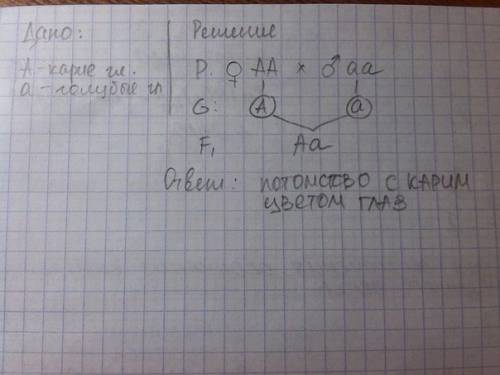 Дано:
А - карие гл.
а - голубые гл
Решение
P. ♀ AA × ♂ aa
G: A a
F₁ Aa
Ответ: потомство с карим
цветом глаз